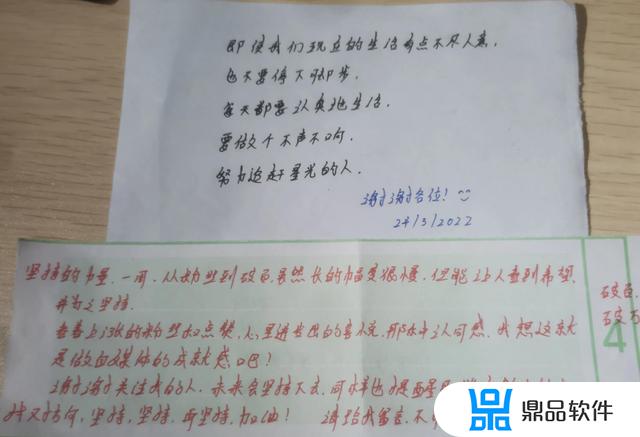 即使我们现在的生活有点不尽人意,
也不要停下脚步.
每天都要认真地生活.
要做个不声不响.
努力追赶星光的人.
谢谢各位!
24/3/2022
坚持的力量.一周.从粉丝到破百虽然长的幅度很慢.但能让人看到希望.
并为之坚持.
查看上涨的粉丝和点赞.心里迸发出的喜悦.那份认可感.我想这就
是做自媒体的成就感吧!
谢谢关注我的人.未来会坚持下去.
坚持,坚持.再坚持.加油! 请给我留言.不
破百.
破百
4
鼎品软件